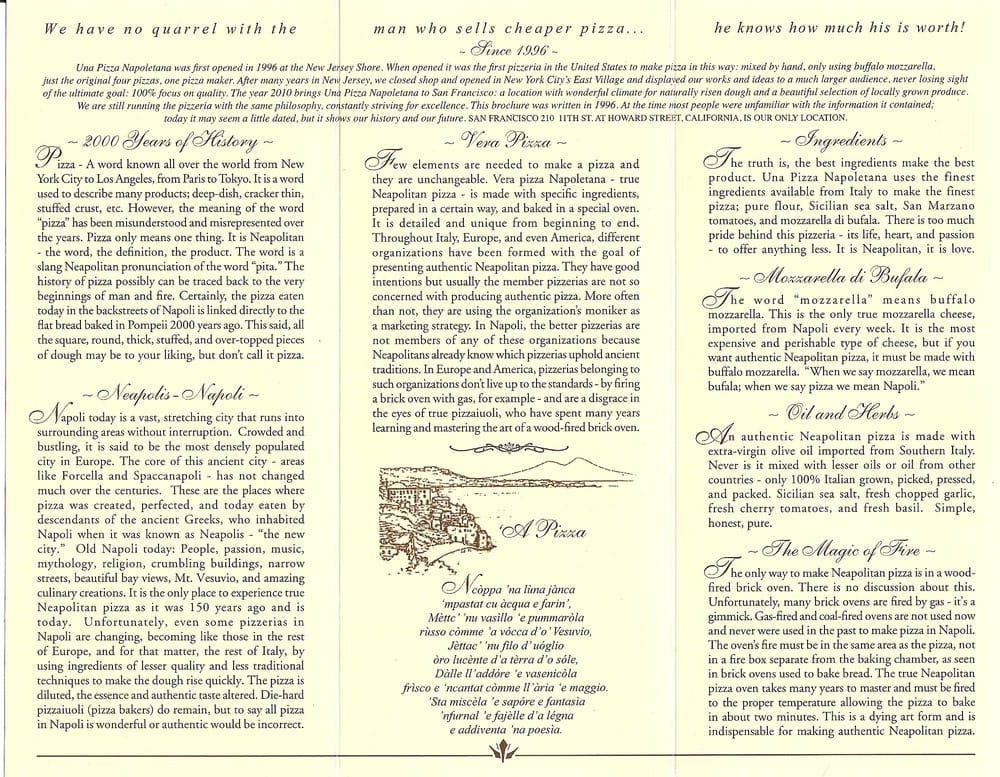 We have no quarrel with the man who sells cheaper pizza... he knows how much his is worth!
~ Since 1996 ~
Una Pizza Napoletana was first opened in 1996 at the New Jersey Shore. When opened it was the first pizzeria in the United States to make pizza in this way: mixed by hand, only using buffalo mozzarella,
just the original four pizzas, one pizza maker. After many years in New Jersey, we closed shop and opened in New York City's East Village and displayed our works and ideas to a much larger audience, never losing sight
of the ultimate goal: 100% focus on quality. The year 2010 brings Una Pizza Napoletana to San Francisco: a location with wonderful climate for naturally risen dough and a beautiful selection of locally grown produce.
We are still running the pizzeria with the same philosophy, constantly striving for excellence. This brochure was written in 1996. At the time most people were unfamiliar with the information it contained;
today it may seem a little dated, but it shows our history and our future. SAN FRANCISCO 210 11TH ST. AT HOWARD STREET, CALIFORNIA, IS OUR ONLY LOCATION.
~ 2000 Years of History ~
Pizza - A word known all over the world from New
York City to Los Angeles, from Paris to Tokyo. It is a word
used to describe many products; deep-dish, cracker thin,
stuffed crust, etc. However, the meaning of the word
"pizza" has been misunderstood and misrepresented over
the years. Pizza only means one thing. It is Neapolitan
- the word, the definition, the product. The word is a
slang Neapolitan pronunciation of the word "pita." The
history of pizza possibly can be traced back to the very
beginnings of man and fire. Certainly, the pizza eaten
today in the backstreets of Napoli is linked directly to the
flat bread baked in Pompeii 2000 years ago. This said, all
the square, round, thick, stuffed, and over-topped pieces
of dough may be to your liking, but don't call it pizza.
~ Neapolis - Napoli ~
Napoli today is a vast, stretching city that runs into
surrounding areas without interruption. Crowded and
bustling, it is said to be the most densely populated
city in Europe. The core of this ancient city - areas
like Forcella and Spaccanapoli - has not changed
much over the centuries. These are the places where
pizza was created, perfected, and today eaten by
descendants of the ancient Greeks, who inhabited
Napoli when it was known as Neapolis - "the new
city." Old Napoli today: People, passion, music,
mythology, religion, crumbling buildings, narrow
streets, beautiful bay views, Mt. Vesuvio, and amazing
culinary creations. It is the only place to experience true
Neapolitan pizza as it was 150 years ago and is
today. Unfortunately, even some pizzerias in
Napoli are changing, becoming like those in the rest
of Europe, and for that matter, the rest of Italy, by
using ingredients of lesser quality and less traditional
techniques to make the dough rise quickly. The pizza is
diluted, the essence and authentic taste altered. Die-hard
pizzaiuoli (pizza bakers) do remain, but to say all pizza
in Napoli is wonderful or authentic would be incorrect.
~ Vera Pizza ~
Few elements are needed to make a pizza and
they are unchangeable. Vera pizza Napoletana - true
Neapolitan pizza - is made with specific ingredients,
prepared in a certain way, and baked in a special oven.
It is detailed and unique from beginning to end.
Throughout Italy, Europe, and even America, different
organizations have been formed with the goal of
presenting authentic Neapolitan pizza. They have good
intentions but usually the member pizzerias are not so
concerned with producing authentic pizza. More often
than not, they are using the organization's moniker as
a marketing strategy. In Napoli, the better pizzerias are
not members of any of these organizations because
Neapolitans already know which pizzerias uphold ancient
traditions. In Europe and America, pizzerias belonging to
such organizations don't live up to the standards - by firing
a brick oven with gas, for example - and are a disgrace in
the eyes of true pizzaiuoli, who have spent many years
learning and mastering the art of a wood-fired brick oven.
'A Pizza
Ncòppa 'na lùna jànca
'mpastat cu àcqua e farin',
Mèttc' 'nu vasìllo 'e pummaròla
rùsso còmme 'a vócca d'o' Vesuvio,
Jèttac' 'nu filo d' uóglio
òro lucènte d'a tèrra d'o sóle,
Dàlle ll'addóre 'e vasenicòla
frìsco e 'ncantat còmme ll'ària 'e maggio.
'Sta miscèla 'e sapóre e fantasìa
'nfurnal 'e fajèlle d'a légna
e addiventa 'na poesìa.
~ Ingredients ~
The truth is, the best ingredients make the best
product. Una Pizza Napoletana uses the finest
ingredients available from Italy to make the finest
pizza; pure flour, Sicilian sea salt, San Marzano
tomatoes, and mozzarella di bufala. There is too much
pride behind this pizzeria - its life, heart, and passion
- to offer anything less. It is Neapolitan, it is love.
~ Mozzarella di Bufala ~
The word "mozzarella" means buffalo
mozzarella. This is the only true mozzarella cheese,
imported from Napoli every week. It is the most
expensive and perishable type of cheese, but if you
want authentic Neapolitan pizza, it must be made with
buffalo mozzarella. "When we say mozzarella, we mean
bufala; when we say pizza we mean Napoli."
~ Oil and Herbs ~
An authentic Neapolitan pizza is made with
extra-virgin olive oil imported from Southern Italy.
Never is it mixed with lesser oils or oil from other
countries - only 100% Italian grown, picked, pressed,
and packed. Sicilian sea salt, fresh chopped garlic,
fresh cherry tomatoes, and fresh basil. Simple,
honest, pure.
~ The Magic of Fire ~
The only way to make Neapolitan pizza is in a wood-
fired brick oven. There is no discussion about this.
Unfortunately, many brick ovens are fired by gas - it's a
gimmick. Gas-fired and coal-fired ovens are not used now
and never were used in the past to make pizza in Napoli.
The oven's fire must be in the same area as the pizza, not
in a fire box separate from the baking chamber, as seen
in brick ovens used to bake bread. The true Neapolitan
pizza oven takes many years to master and must be fired
to the proper temperature allowing the pizza to bake
in about two minutes. This is a dying art form and is
indispensable for making authentic Neapolitan pizza.